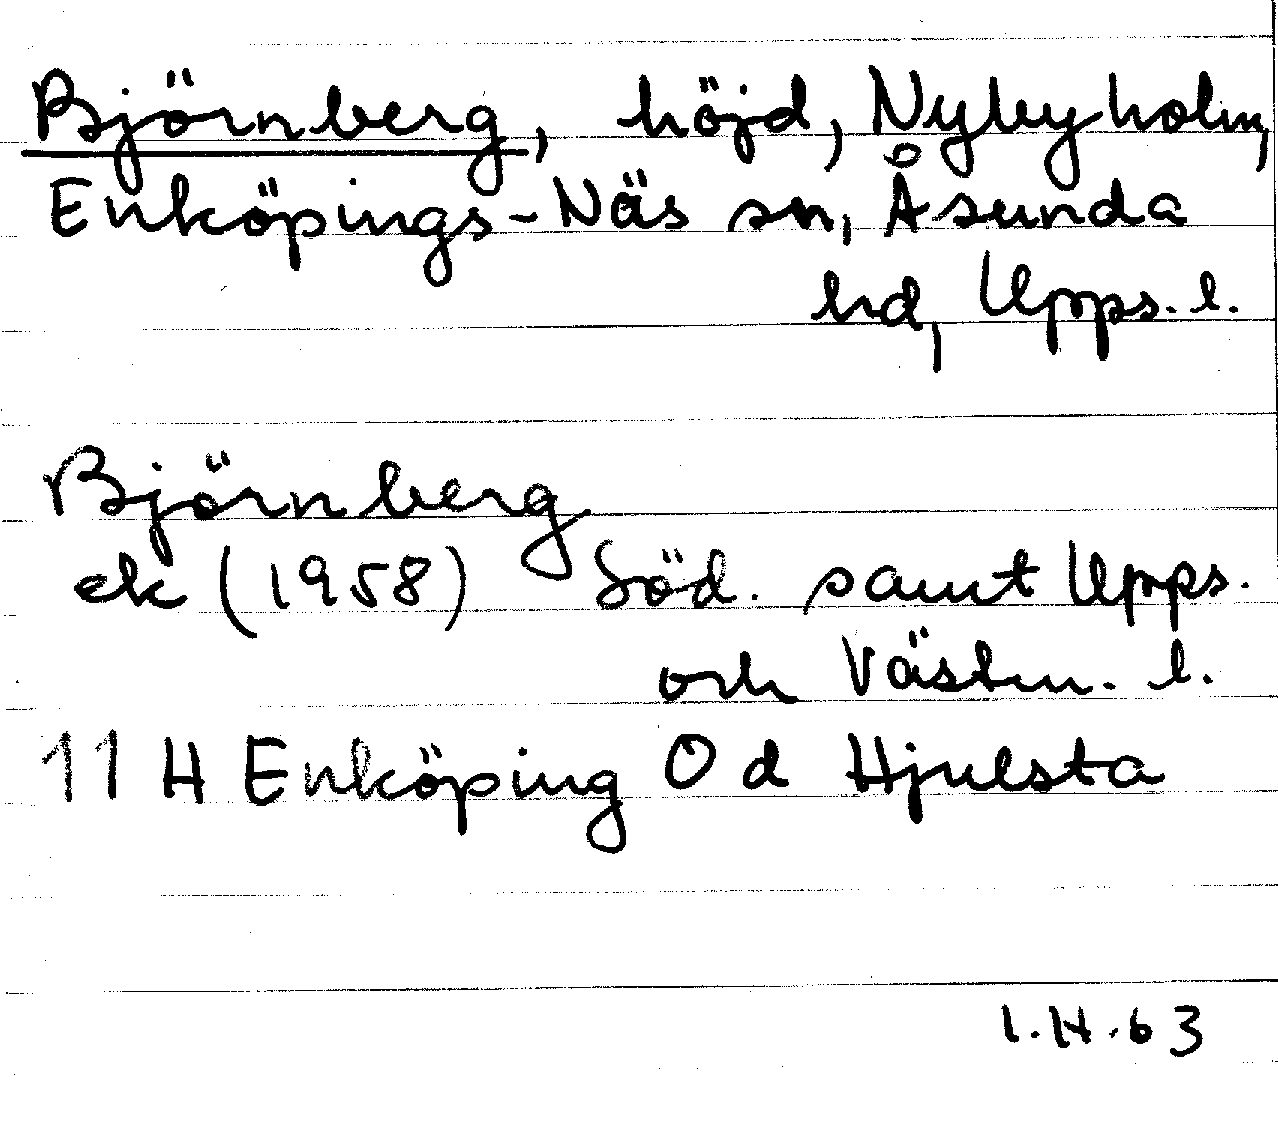 Björnberg, höjd, Nybyholm,
Enköpings-Näs sn, Åsunda
hd, Upps. l.
Björnberg
ek (1958) Söd. samt Upps.
och Västm. l.
11 H Enköping O d Hjulsta
I.H.63